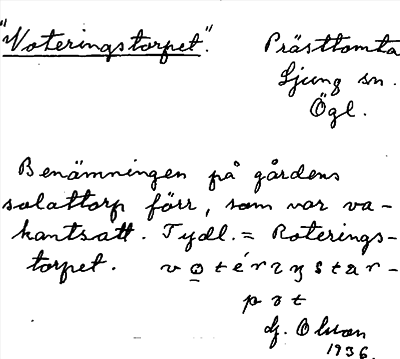 "Voteringstorpet". Prästtomta
Ljung sn.
Ögl.
Benämningen på gårdens
solattorp förr, som var va-
kantsatt. Tydl. = Roterings-
torpet. v o t é r ı ŋ s t a r -
p ə t
G. Olson
1936.